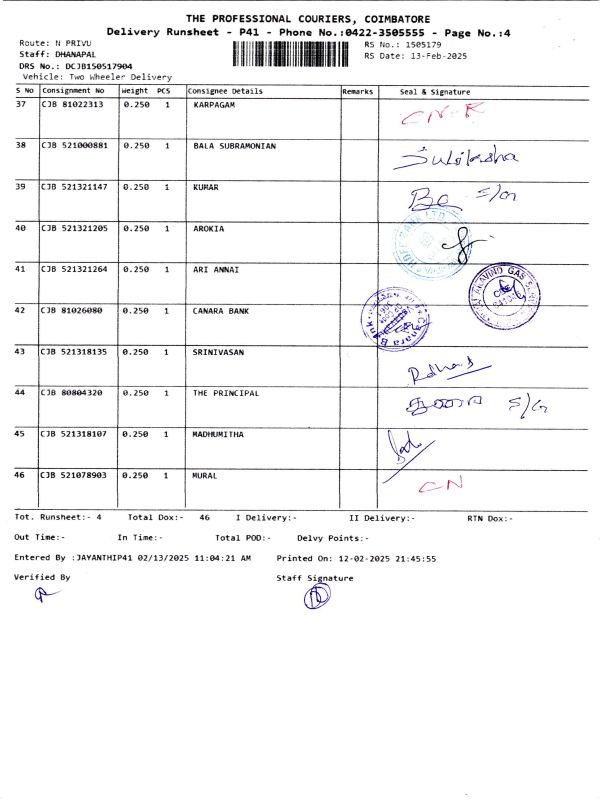 THE PROFESSIONAL COURIERS, COIMBATORE
Delivery Runsheet - P41 - Phone No.:0422-3505555 - Page No.:4
Route: N PRIVU
RS No.: 1505179
Staff: DHANAPAL
RS Date: 13-Feb-2025
DRS No.: DCJB150517904
Vehicle: Two Wheeler Delivery
S No Consignment No Weight PCS Consignee Details Remarks Seal & Signature
37 CJB 81022313 0.250 1 KARPAGAM
38 CJB 521000881 0.250 1 BALA SUBRAMONIAN
39 CJB 521321147 0.250 1 KUMAR
40 CJB 521321205 0.250 1 AROKIA
HDFC BANK LTD
41 CJB 521321264 0.250 1 ARI ANNAI
42 CJB 81026080 0.250 1 CANARA BANK
Canara Bank
43 CJB 521318135 0.250 1 SRINIVASAN
44 CJB 80804320 0.250 1 THE PRINCIPAL
45 CJB 521318107 0.250 1 MADHUMITHA
46 CJB 521078903 0.250 1 MURAL CN
Tot. Runsheet:- 4 Total Dox:- 46 I Delivery:- II Delivery:- RTN Dox:-
Out Time:- In Time:- Total POD:- Delvy Points:-
Entered By :JAYANTHIP41 02/13/2025 11:04:21 AM Printed On: 12-02-2025 21:45:55
Verified By Staff Signature